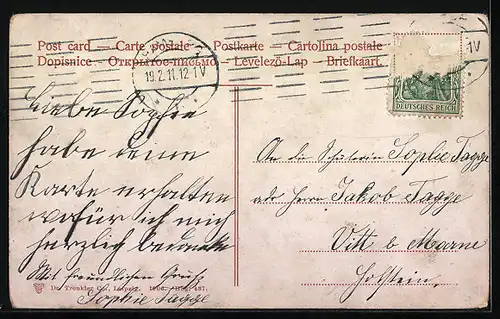 Post card – Carte postale – Postkarte – Cartolina postale
Dopisnice – Открытое письмо – Levelező-Lap – Briefkaart.
19.2.11.12-1V
DEUTSCHES REICH
Liebe Sophie
habe deine
Karte erhalten
wofür ich mich
herzlich bedanke
Mit freundlichen Gruß
Sophie Tagge
An die Schülerin Sophie Tagge
adr Herrn Jakob Tagge
Vitt b Marne
Holstein.
Dr. Trenkler Co., Leipzig. 1906.